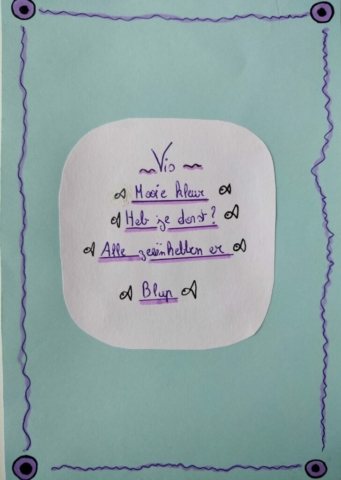 ~ Vis ~
Mooie kleur
Heb je dorst?
Alle zeeën hebben er
Blup